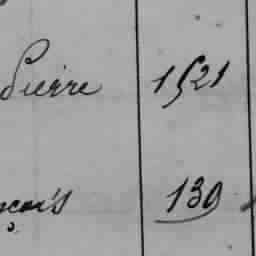 Pierre 1521
nçois 130